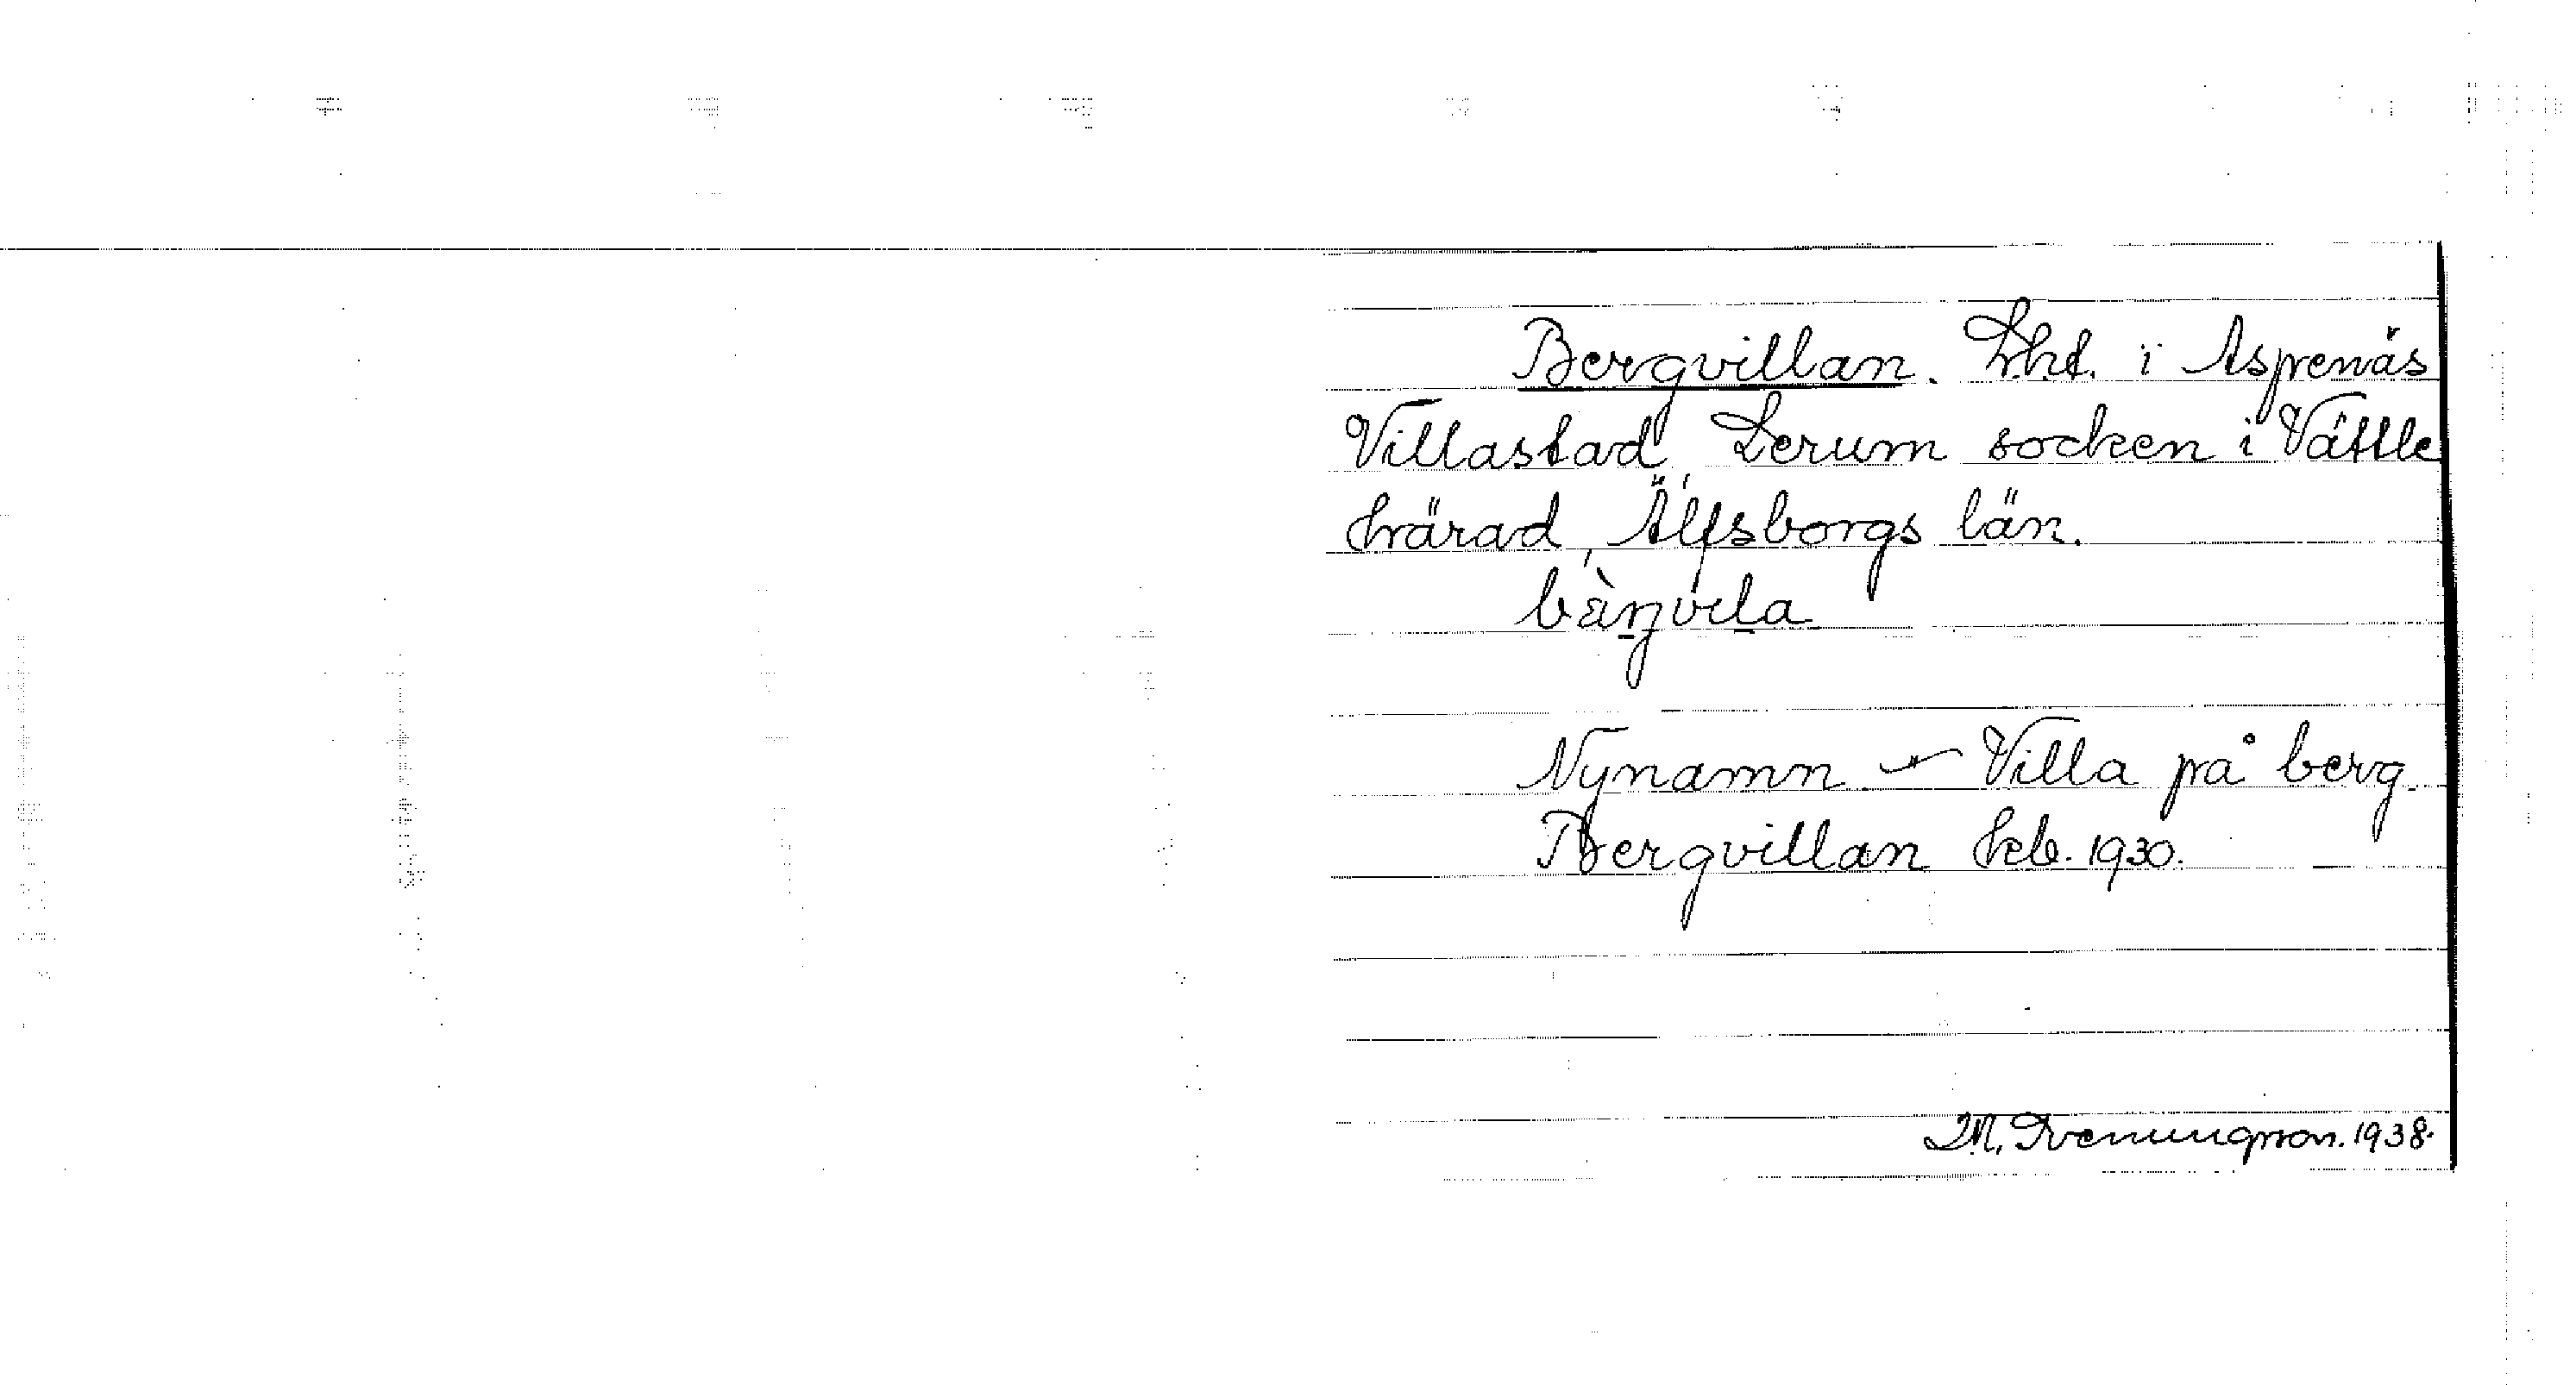 Bergvillan. Lht. i Aspenäs
Villastad, Lerum socken i Vättle
härad, Älfsborgs län.
Nynamn - Villa på berg.
Bergvillan Jeb. 1930.
M. Svenungson. 1938.